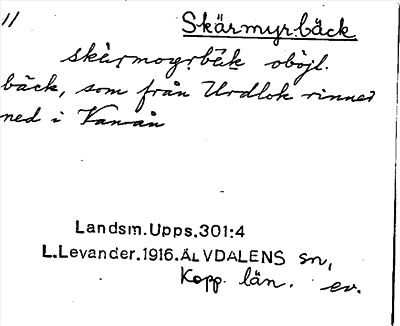 11 Skärmyrbäck
skèrmoyrbɛ̆k oböjl.
bäck, som från Urdlok rinner
ned i Vanån
Landsm.Upps.301:4
L.Levander.1916.ÄLVDALENS sn,
Kopp. län. ev.